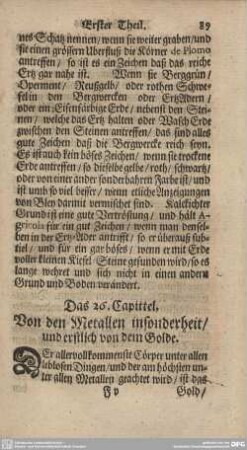 Erster Theil. 89
nes Schatz nennen/ wenn sie weiter graben/ und
sie einen grössern Uberfluß die Körner de Plomo
antreffen/ so ist es ein Zeichen daß das reiche
Ertz gar nahe ist. Wenn sie Berggrün/
Operment/ Reußgelb/ oder rothen Schwe-
fel in den Bergwercken oder Ertz Adern/
oder ein Eisenfärbige Erde/ nebenst den Stei-
nen/ welche das Ertz halten oder Wasch Erde
zwischen den Steinen antreffen/ das sind alles
gute Zeichen daß die Bergwercke reich seyn.
Es ist auch kein böses Zeichen/ wenn sie trockene
Erde antreffen/ so dieselbe gelbe/ roth/ schwartz/
oder von einer ander sonderbahren Farbe ist/ und
ist umb so viel besser/ wenn etliche Anzeigungen
von Bley darmit vermischet sind. Kalckichter
Grund ist eine gute Vertröstung/ und hält A-
gricola für ein gut Zeichen/ wenn man densel-
ben in der Ertz-Ader antrifft/ so er überauß sub-
til/ und für ein gar böses/ wenn er mit Erde
voller kleinen Kiesel Steine gefunden wird/ so es
lange wehret und sich nicht in einen andern
Grund und Boden verändert.
Das 26. Capittel.
Von den Metallen insonderheit/
und erstlich von dem Golde.
Der allervollkommenste Cörper unter allen
leblosen Dingen/ und der am höchsten un-
ter allen Metallen geachtet wird/ ist das
F v Gold/